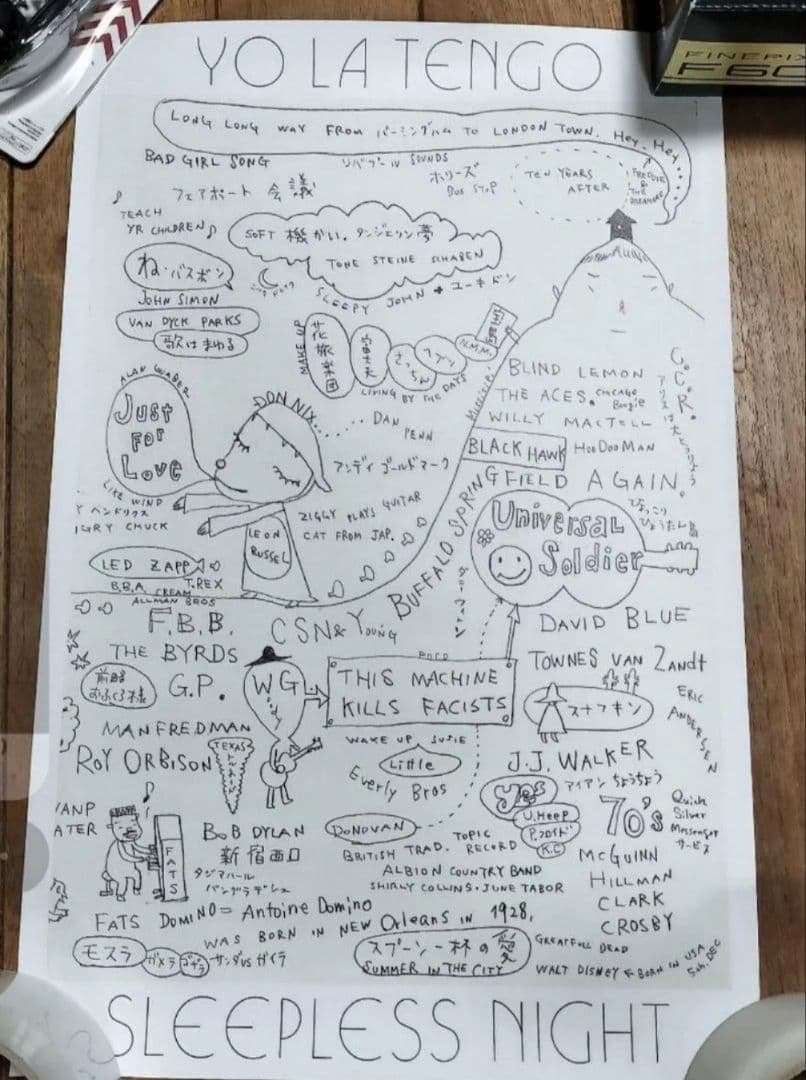 FINEPIX
F60
YO LA TENGO
LONG LONG WAY FROM バーミングハム TO LONDON TOWN. Hey, Hey....
BAD GIRL SONG
リバプール SOUNDS
ホリーズ
BUS STOP
TEN YEARS
AFTER
FREDDIE
&
THE
DREAMERS
フェアポート 会議
TEACH
YR CHILDREN
SOFT 機かい。タンジェリン夢
TONE STEINE SCHABEN
ね・バスボン
JOHN SIMON
SLEEPY JOHN + ユーキドン
VAN DYCK PARKS
歌はまわる
MAKE UP
花旅楽団
LIVING BY THE DAYS
BLIND LEMON
THE ACES.
CHICAGO
Boogie
WILLY MACTELL
C.C.R.
BLACK HAWK
HOODOOMAN
BUFFALO SPRINGFIELD AGAIN.
Just
For
Love
DON NIX
DAN
PENN
アンディゴールドマーク
LIKE WIND
IGRY CHUCK
ZIGGY PLAYS GUITAR
CAT FROM JAP.
LEON
RUSSEL
ひょっこり
ひょうたん島
Universal
Soldier
LED ZAPP
B.B.A.
CREAM
T.REX
ALLMAN BROS
F.B.B.
CSN& YOUNG
DAVID BLUE
THE BYRDS
POCO
TOWNES VAN Zandt
G.P.
WG
THIS MACHINE
KILLS FACISTS
スナフキン
ERIC
ANDERSEN
MANFREDMAN
WAKE UP SUSIE
ROY ORBISON
TEXAS
Little
Everly Bros
J.J. WALKER
yes
アイアン ちょうちょう
U.HEEP
P.フロイド
K.C
70's
Quick
Silver
Messenger
サービス
FATS
BOB DYLAN
新宿西口
タジマハール
バングラデシュ
DONOVAN
BRITISH TRAD.
TOPIC
RECORD
ALBION COUNTRY BAND
SHIRLY COLLINS・JUNE TABOR
McGUINN
HILLMAN
CLARK
CROSBY
FATS DOMINO = Antoine Domino
WAS BORN IN NEW Orleans IN 1928,
モスラ
ガメラ
ゴジラ
サンダ VS ガイラ
スプーン一杯の愛
SUMMER IN THE CITY
GREATFULL DEAD
WALT DISNEY ← BORN IN USA
5th. DEC
SLEEPLESS NIGHT